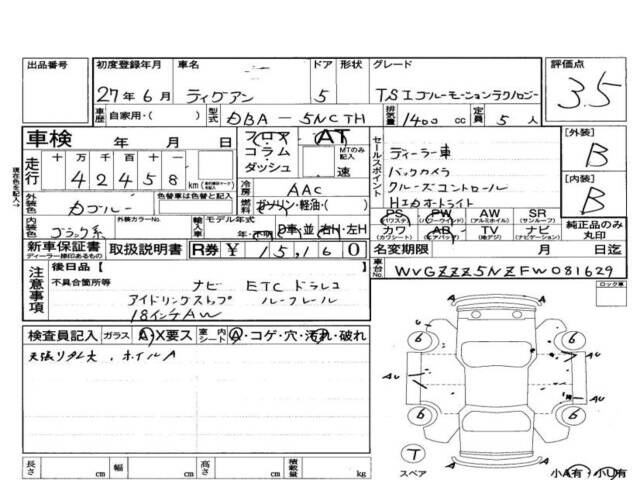 出品番号 初度登録年月 車名 ドア 形状 グレード 評価点
27年6月 ティグアン 5 TSIブルーモーションテクノロジー 3.5
車歴 自家用・( ) 型式 DBA-5NCTH 排気量 1400 cc 定員 5人
車検 年 月 日 フロア AT
コラム
ダッシュ MTのみ記入 速
現在色を記入→
走行 十万 万 千 百 十
4 2 4 5 8 km
冷房 AAC
外装色 カブルー 色替車は色替と記入 燃料 ガソリン・軽油・( )
内装色 ブラック系 外装カラーNo. 輸入車 モデル年式 年・不明 D車・並 右H・左H
セールスポイント
ディーラー車
バックカメラ
クルーズコントロール
HIDオートライト
[外装] B
[内装] B
PS (パワステ) PW (パワーウインド) AW (アルミホイル) SR (サンルーフ)
カワ (カワシート) AB (エアバッグ) TV (地デジ) ナビ (ナビゲーション)
純正品のみ丸印
新車保証書 ディーラー捺印あるもの 取扱説明書 R券 ¥ 15,160
名変期限 月 日迄
車台No. WVGZZZ5NZFW081629
注意事項
後日品【 】
不具合箇所等 ナビ ETC ドラレコ
アイドリングストップ ルーフレール
18インチAW
ロック車
検査員記入 ガラス A・X要ス 室内シート A・コゲ・穴・汚れ・破れ
天張りタレ大、ホイルA
A
6 6
AU AU
6 6
T
スペア
A
長さ cm 幅 cm 高さ cm 積載量 kg
小A有・小U有